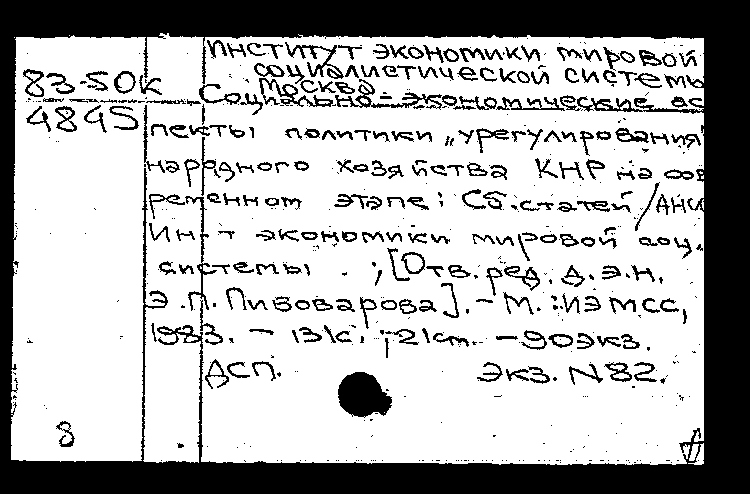 Институт экономики мировой
социалистической системы
83-50К
Москва
Социально-экономические ас
4845
пекты политики „урегулирования"
народного хозяйства КНР на сов
ременном этапе: Сб.статей /АН
Ин-т экономики мировой соц.
системы . ; [Отв. ред. д.э.н.
Э.П. Пивоварова]. - М. : ИЭМСС,
1983. - 131с. ; 21см. - 90экз.
ДСП. Экз. N82.
8